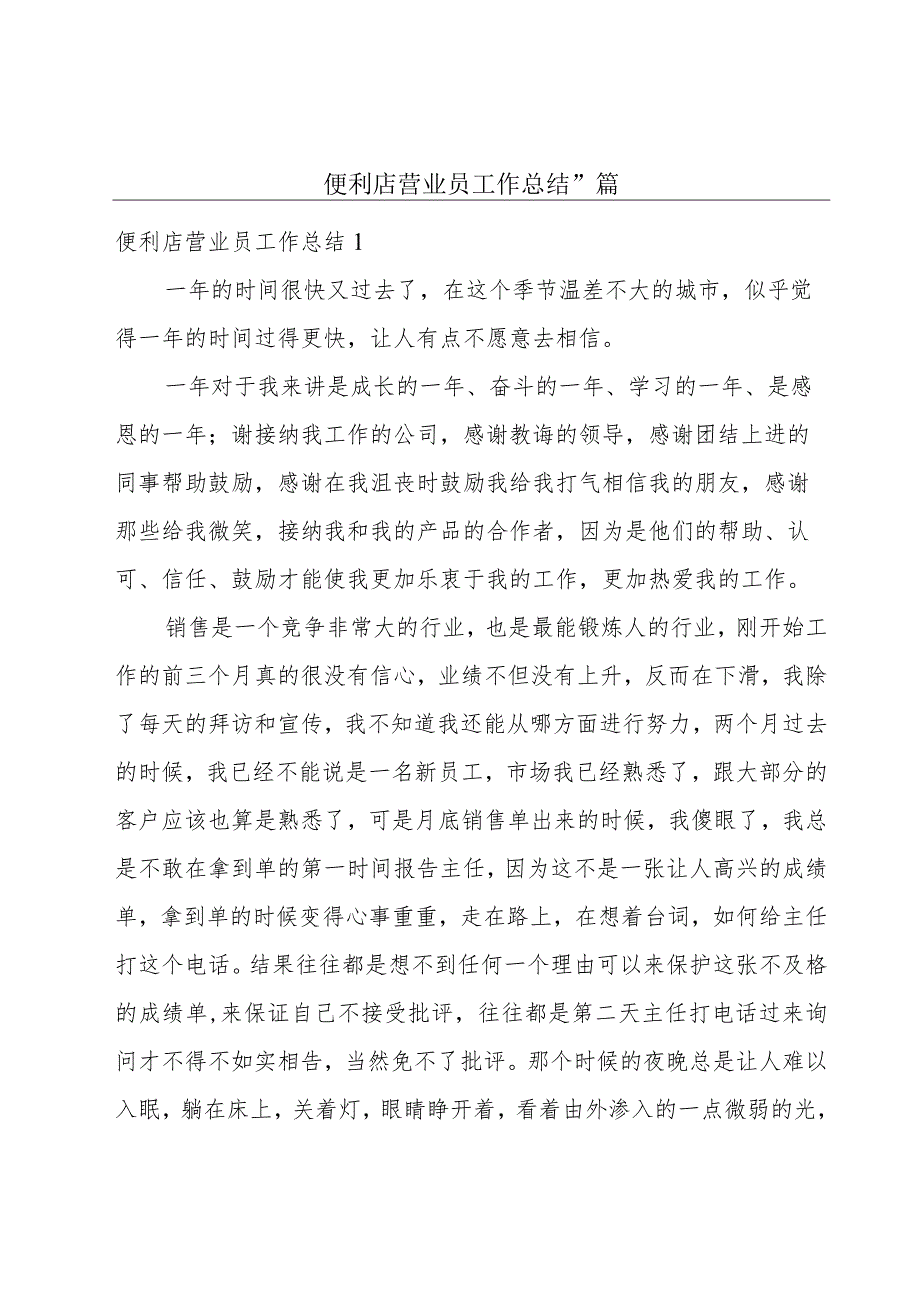 便利店营业员工作总结”篇
便利店营业员工作总结1
一年的时间很快又过去了，在这个季节温差不大的城市，似乎觉
得一年的时间过得更快，让人有点不愿意去相信。
一年对于我来讲是成长的一年、奋斗的一年、学习的一年、是感
恩的一年；谢接纳我工作的公司，感谢教诲的领导，感谢团结上进的
同事帮助鼓励，感谢在我沮丧时鼓励我给我打气相信我的朋友，感谢
那些给我微笑，接纳我和我的产品的合作者，因为是他们的帮助、认
可、信任、鼓励才能使我更加乐衷于我的工作，更加热爱我的工作。
销售是一个竞争非常大的行业，也是最能锻炼人的行业，刚开始工
作的前三个月真的很没有信心，业绩不但没有上升，反而在下滑，我除
了每天的拜访和宣传，我不知道我还能从哪方面进行努力，两个月过去
的时候，我已经不能说是一名新员工，市场我已经熟悉了，跟大部分的
客户应该也算是熟悉了，可是月底销售单出来的时候，我傻眼了，我总
是不敢在拿到单的第一时间报告主任，因为这不是一张让人高兴的成绩
单，拿到单的时候变得心事重重，走在路上，在想着台词，如何给主任
打这个电话。结果往往都是想不到任何一个理由可以来保护这张不及格
的成绩单,来保证自己不接受批评，往往都是第二天主任打电话过来询
问才不得不如实相告，当然免不了批评。那个时候的夜晚总是让人难以
入眠，躺在床上，关着灯，眼睛睁开着，看着由外渗入的一点微弱的光，